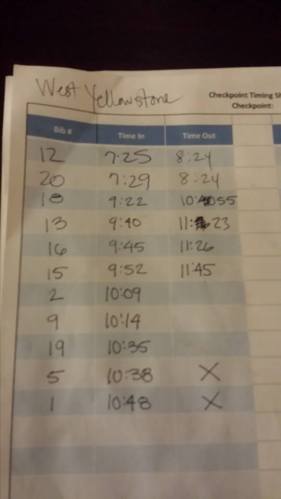 West Yellowstone
Checkpoint Timing Sh
Checkpoint:
Bib # Time In Time Out
12 7:25 8:24
20 7:29 8:24
18 9:22 10:55
13 9:40 11:23
16 9:45 11:26
15 9:52 11:45
2 10:09
9 10:14
19 10:35
5 10:38 X
1 10:48 X